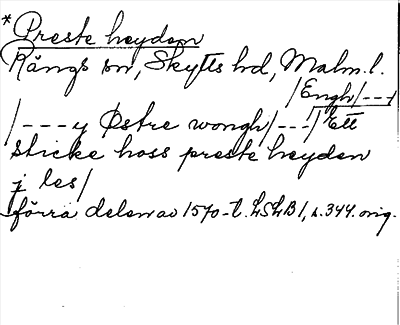 * Preste heyden
Rängs sn, Skytts hd, Malm. l.
/Engh/---/
/---y Østre wongh/---/ Ett
sticke hoss preste heyden
j les/
förra delen av 1570-t. LSLB 1, s. 344. orig.